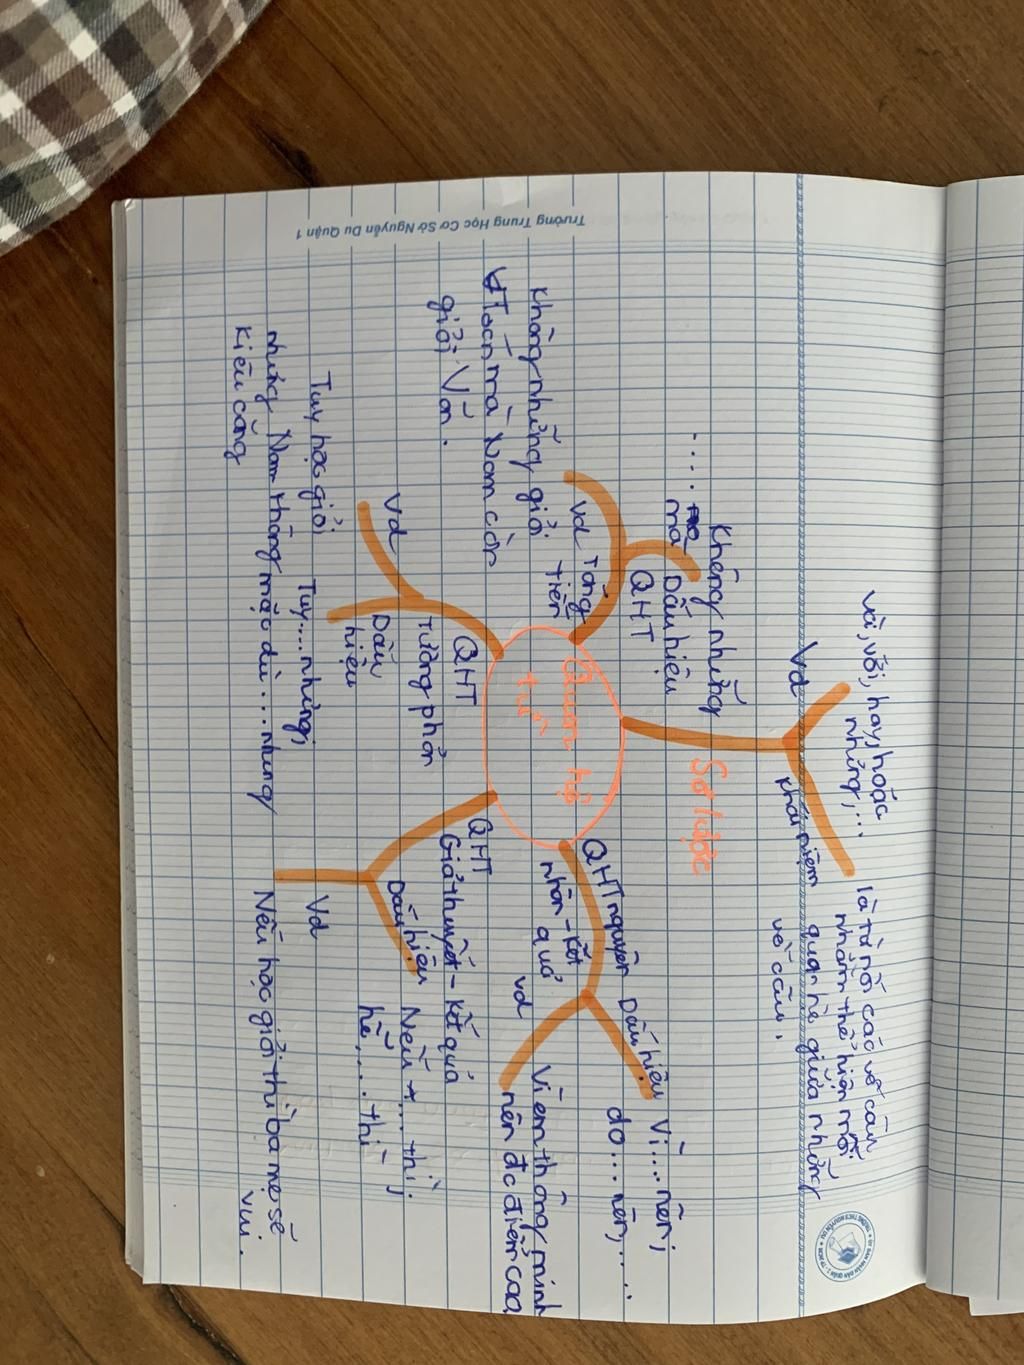 Trường Trung Học Cơ Sở Nguyễn Du Quận 1
Quan hệ
từ
Sơ lược
Vd
và, với, hay, hoặc
nhưng,...
khái niệm
là từ nối các vế câu
nhằm thể hiện mối
quan hệ giữa những
vế câu.
QHT nguyên
nhân - kết
quả
Dấu hiệu
Vì....nên;
do...nên,.....
vd
Vì em thông minh
nên đc điểm cao.
QHT
Giả thuyết - kết quả
Dấu hiệu
Nếu ... thì;
hễ,... thì
Vd
Nếu học giỏi thì ba mẹ sẽ
vui.
QHT
tương phản
Dấu
hiệu
Tuy....nhưng;
mặc dù....nhưng
Vd
Tuy học giỏi
nhưng Nam không
kiêu căng
QHT
Tăng
tiến
Dấu hiệu
Không những
.... mà
vd
Không những giỏi
Toán mà Nam còn
giỏi Văn.